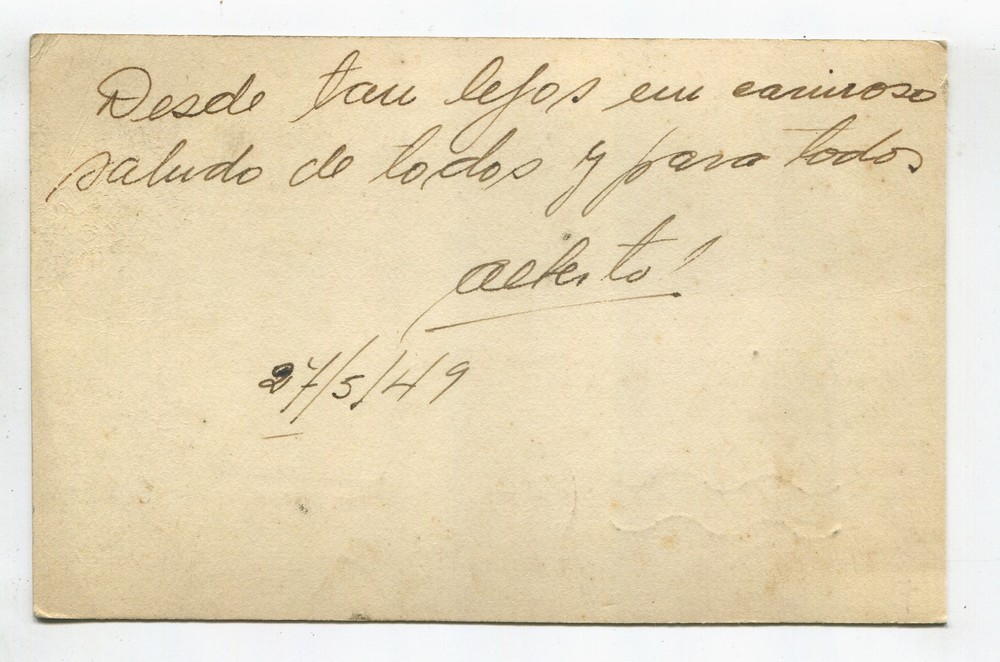 Desde tan lejos un cariñoso
saludo de todos y para todos
Alberto
27/5/49